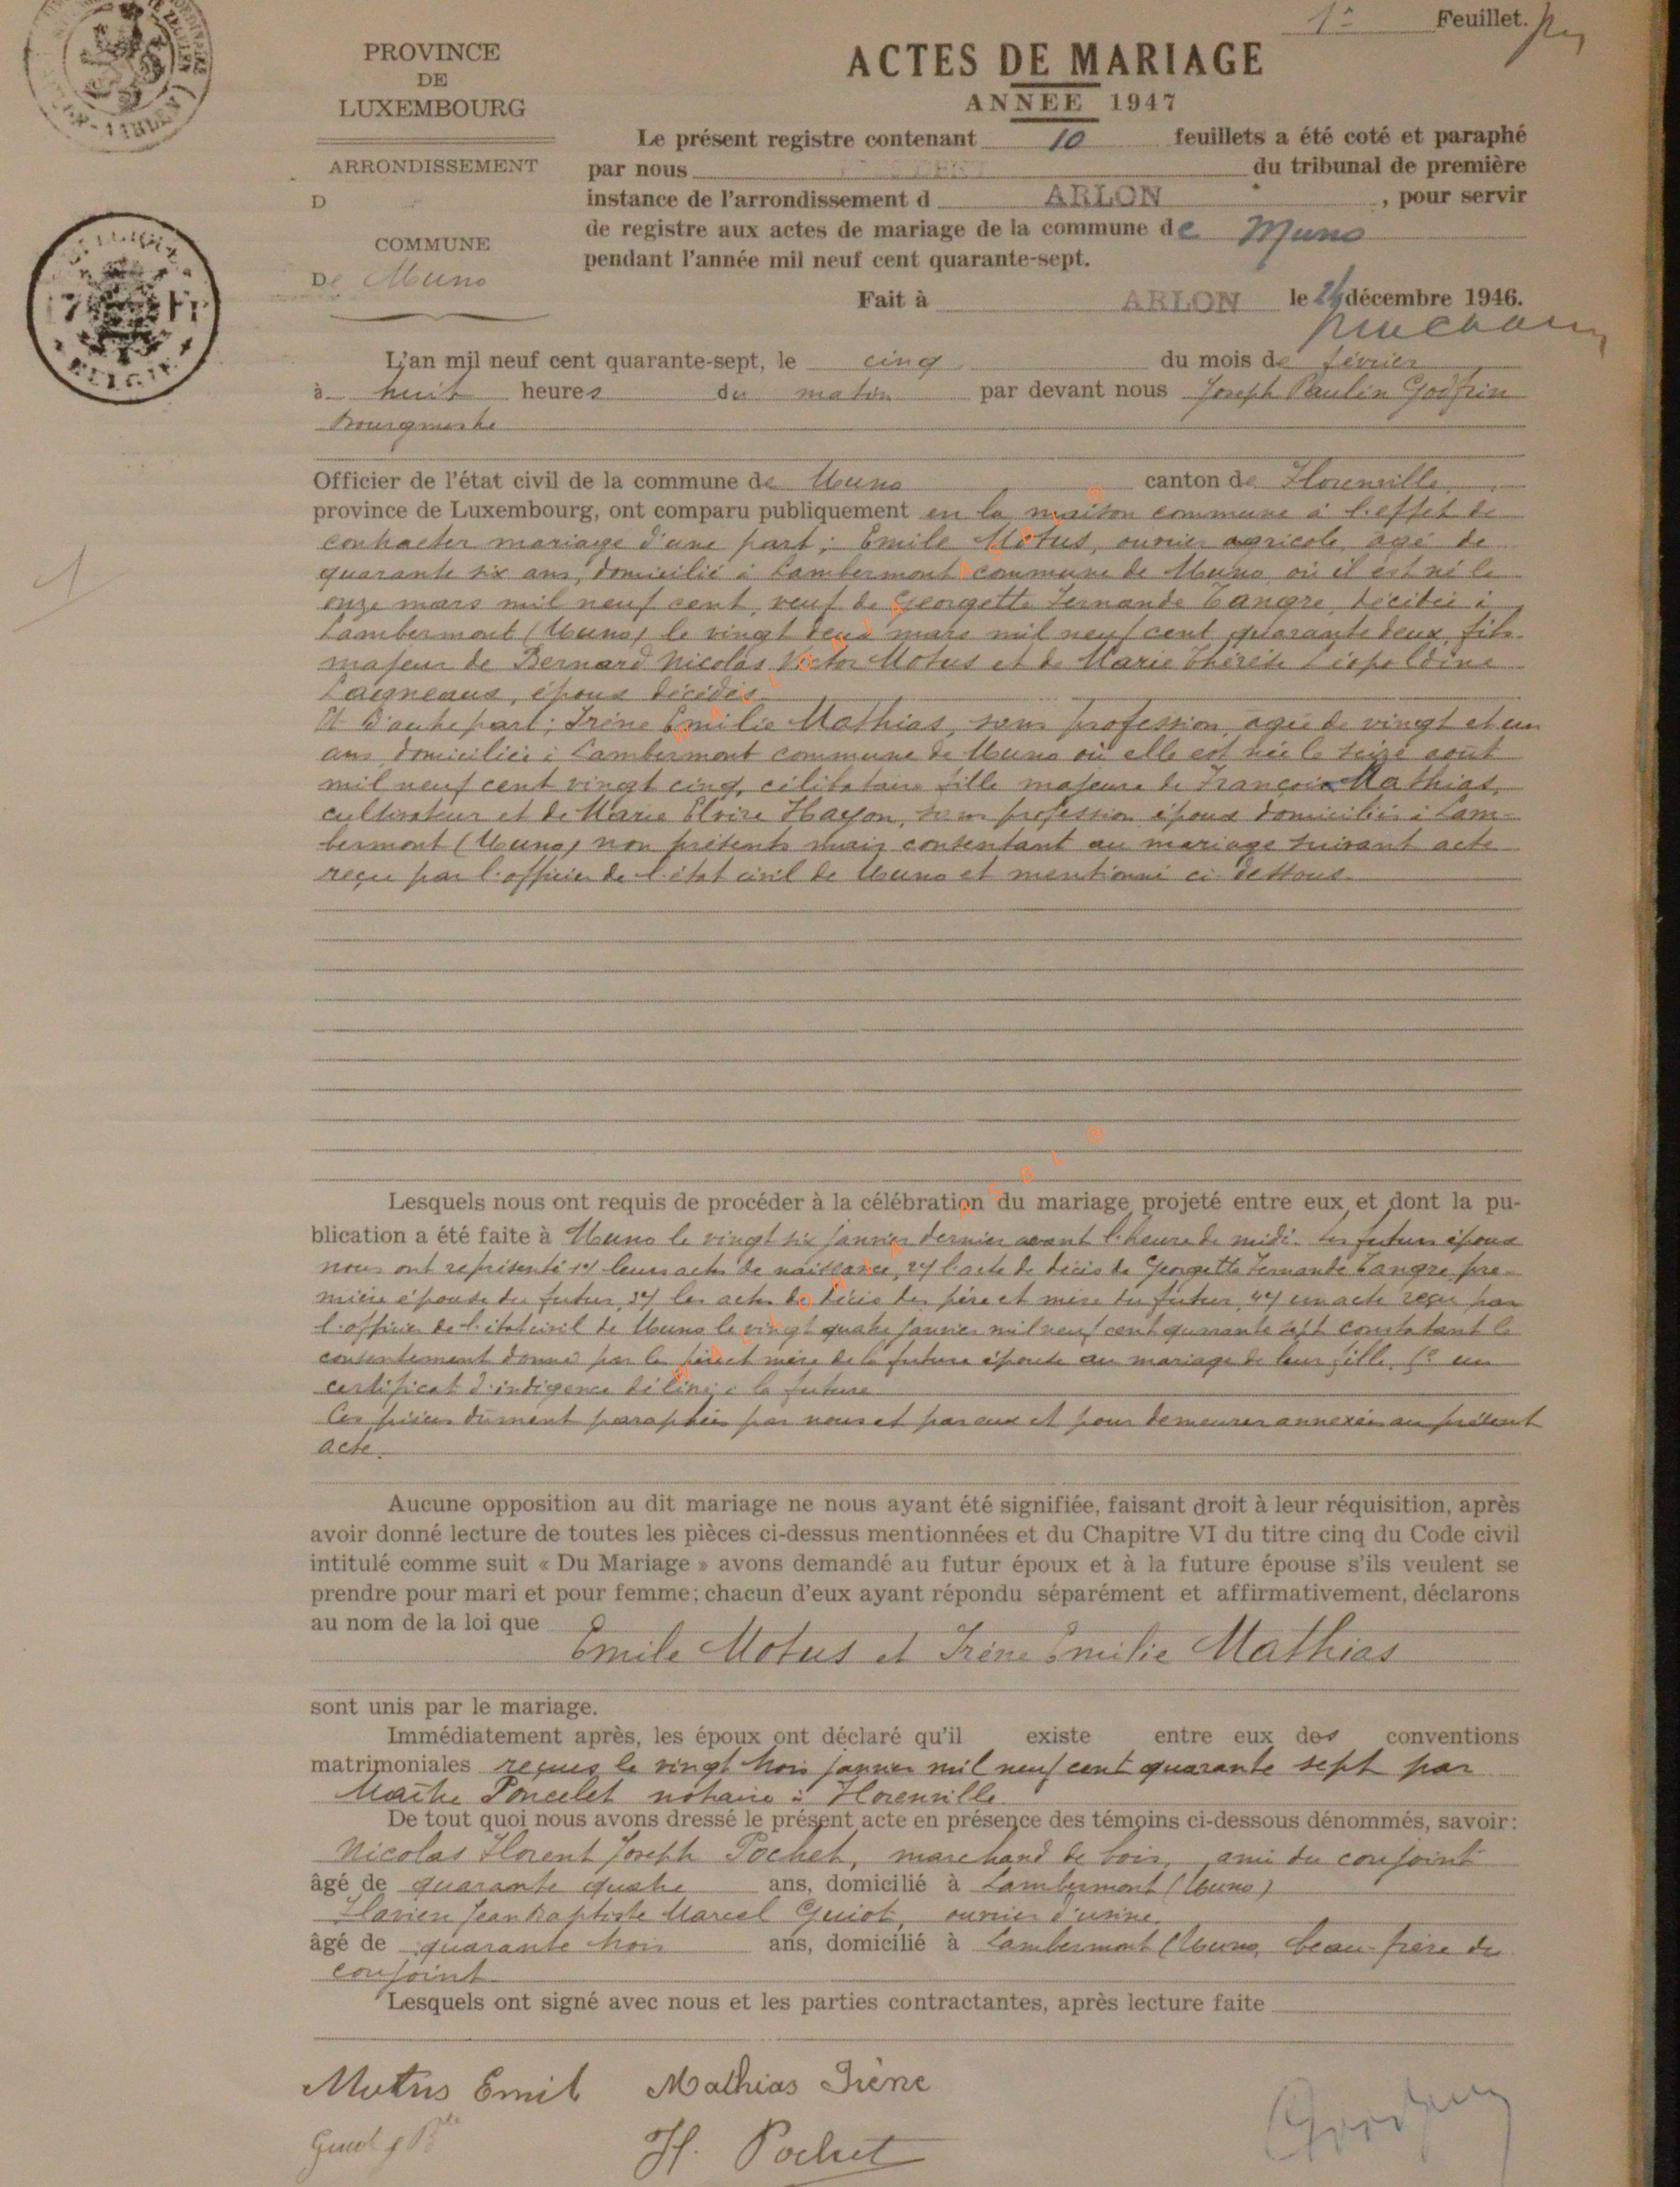 1º Feuillet.
PROVINCE
DE
LUXEMBOURG
ARRONDISSEMENT
D
COMMUNE
De Muno
ACTES DE MARIAGE
ANNÉE 1947
Le présent registre contenant 10 feuillets a été coté et paraphé
par nous du tribunal de première
instance de l'arrondissement d ARLON, pour servir
de registre aux actes de mariage de la commune de Muno
pendant l'année mil neuf cent quarante-sept.
Fait à ARLON le 24 décembre 1946.
1
L'an mil neuf cent quarante-sept, le cinq du mois de février
à huit heures du matin par devant nous Joseph Paulin Godfrin
Bourgmestre
Officier de l'état civil de la commune de Muno canton de Florenville,
province de Luxembourg, ont comparu publiquement en la maison commune à l'effet de
contracter mariage d'une part; Emile Motus, ouvrier agricole, âgé de
quarante six ans, domicilié à Lambermont commune de Muno, où il est né le
onze mars mil neuf cent, veuf de Georgette Fernande Tangre, décédée à
Lambermont (Muno) le vingt deux mars mil neuf cent quarante deux, fils
majeur de Bernard Nicolas Victor Motus et de Marie Thérèse Léopoldine
Laigneaux, époux décédés
Et d'autre part; Irène Emilie Mathias, sans profession, agée de vingt et un
ans domiciliée à Lambermont commune de Muno où elle est née le seize août
mil neuf cent vingt cinq, célibataire fille majeure de François Mathias,
cultivateur et de Marie Eloïse Hayon, sans profession époux domiciliés à Lam-
bermont (Muno) non présents mais consentant au mariage suivant acte
reçu par l'officier de l'état civil de Muno et mentionné ci dessous
Lesquels nous ont requis de procéder à la célébration du mariage projeté entre eux et dont la pu-
blication a été faite à Muno le vingt six janvier dernier avant l'heure de midi. Les futurs époux
nous ont représenté 1º/ leurs actes de naissance, 2º/ l'acte de décès de Georgette Fernande Tangre, pre-
mière épouse du futur, 3º/ les actes de décès des père et mère du futur, 4º/ un acte reçu par
l'officier de l'état civil de Muno le vingt quatre janvier mil neuf cent quarante sept constatant le
consentement donné par les père et mère de la future épouse au mariage de leur fille, 5º un
certificat d'indigence délivré à la future
Ces pièces dûment paraphées par nous et par eux et pour demeurer annexées au présent
acte.
Aucune opposition au dit mariage ne nous ayant été signifiée, faisant droit à leur réquisition, après
avoir donné lecture de toutes les pièces ci-dessus mentionnées et du Chapitre VI du titre cinq du Code civil
intitulé comme suit « Du Mariage » avons demandé au futur époux et à la future épouse s'ils veulent se
prendre pour mari et pour femme; chacun d'eux ayant répondu séparément et affirmativement, déclarons
au nom de la loi que
Emile Motus et Irène Emilie Mathias
sont unis par le mariage.
Immédiatement après, les époux ont déclaré qu'il existe entre eux des conventions
matrimoniales reçues le vingt trois janvier mil neuf cent quarante sept par
Maître Poncelet notaire à Florenville
De tout quoi nous avons dressé le présent acte en présence des témoins ci-dessous dénommés, savoir:
Nicolas Florent Joseph Pochet, marchand de bois, ami du conjoint
âgé de quarante quatre ans, domicilié à Lambermont (Muno)
Flavien Jean Baptiste Marcel Guiot, ouvrier d'usine,
âgé de quarante trois ans, domicilié à Lambermont (Muno, beau-frère du
conjoint
Lesquels ont signé avec nous et les parties contractantes, après lecture faite
Motus Emil Mathias Irène
Guiot J Bte H. Pochet